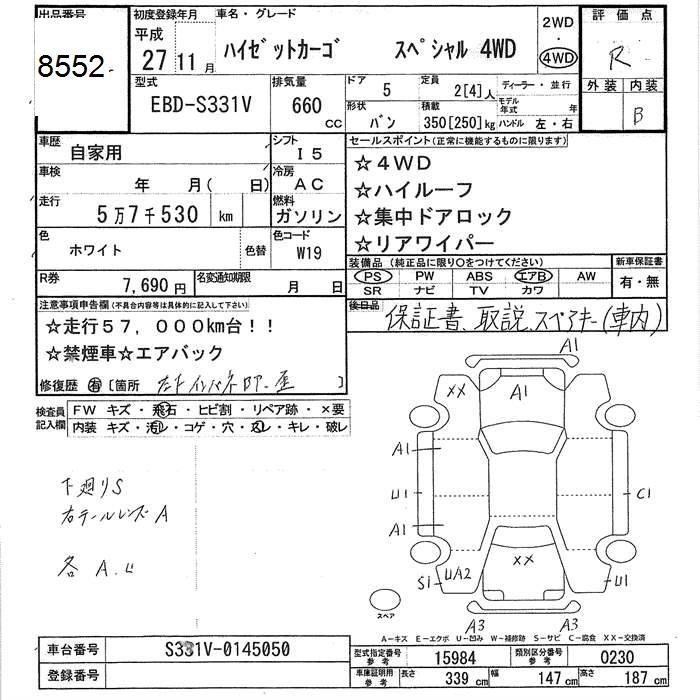 出品番号
8552
初度登録年月
平成
27 11 月
車名・グレード
ハイゼットカーゴ スペシャル 4WD
2WD
・
4WD
評価点
R
外装 内装
B
型式
EBD-S331V
排気量
660
CC
ドア
5
定員
2[4]人
ディーラー・並行
形状
バン
積載
350[250]kg
モデル年式 年
ハンドル 左・右
車歴
自家用
シフト
I5
車検
年 月( 日)
冷房
AC
走行
5万7千530 km
燃料
ガソリン
色
ホワイト
色替
色コード
W19
R券
7,690 円
名変通知期限
月 日
セールスポイント(正常に機能するものに限ります)
☆4WD
☆ハイルーフ
☆集中ドアロック
☆リアワイパー
装備品(純正品に限り○をつけてください)
PS PW ABS エアB AW
SR ナビ TV カワ
新車保証書
有・無
後日品
保証書、取説、スペアキー(車内)
注意事項申告欄(不具合内容等は具体的に記入して下さい)
☆走行57,000km台!!
☆禁煙車☆エアバック
修復歴 有 [箇所 ]
検査員
記入欄
FW キズ・飛石・ヒビ割・リペア跡・×要
内装 キズ・汚レ・コゲ・穴・スレ・キレ・破レ
下廻りS
右テールレンズA
各 A.U
A1
XX
A1
A1
U1
A1
C1
XX
S1
UA2
U1
A3
A3
スペア
A-キズ E-エクボ U-凹み W-補修跡 S-サビ C-腐食 XX-交換済
車台番号
S331V-0145050
登録番号
型式指定番号
参考
15984
類別区分番号
参考
0230
車庫証明用
参考
長さ 339 cm
幅 147 cm
高さ 187 cm